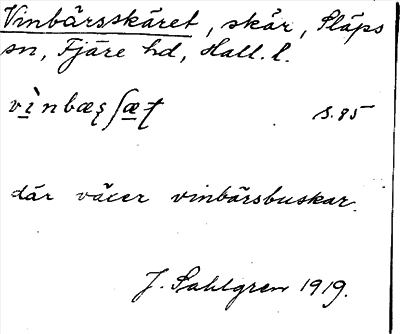 Vinbärsskäret, skär, Släps
sn, Fjäre hd, Hall. l.
vìnbæʂʃæt s. 85
där växer vinbärsbuskar.
J. Sahlgren 1919.